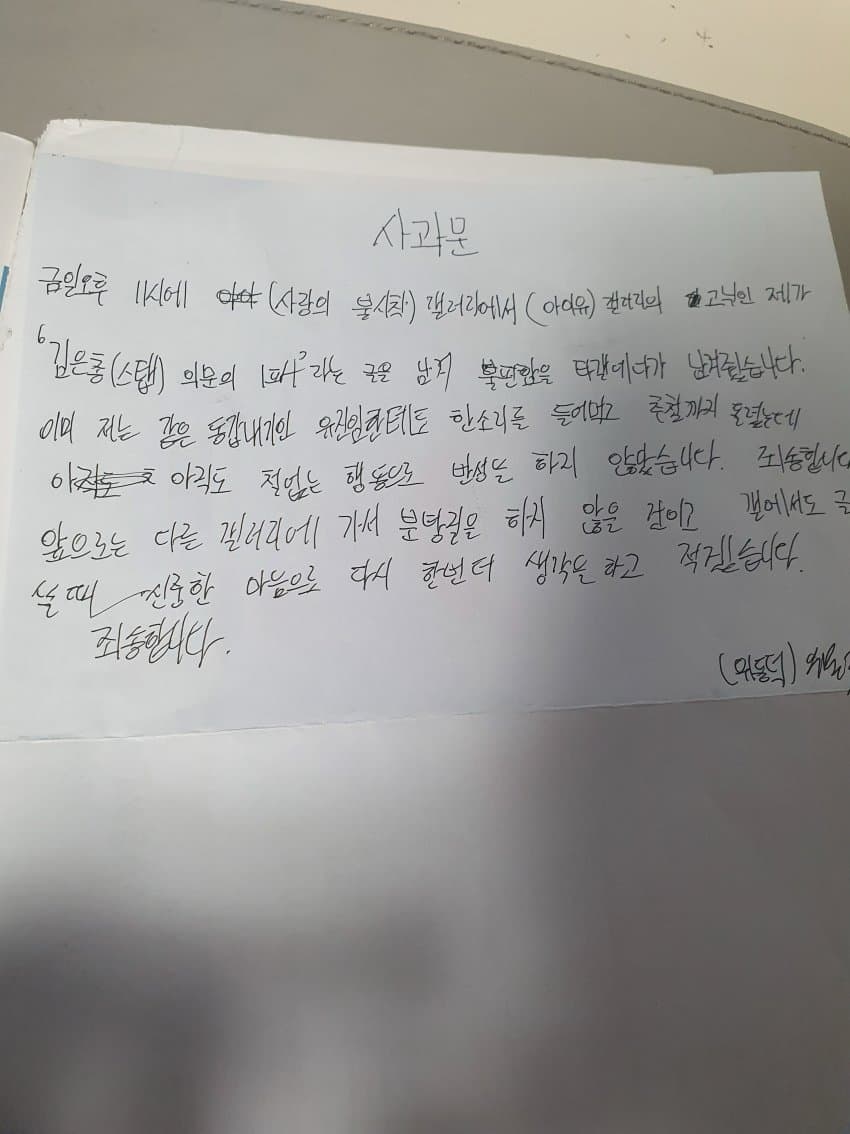 사과문
금일오후 11시에 (사랑의 불시착) 갤러리에서 (아이유) 갤러리의 고닉인 제가
'김은총(스탭) 의문의 1파4'라는 글을 남겨 불편함을 타갤에다가 남겨줬습니다.
이미 저는 같은 동갑내기인 유진임한테도 한소리를 들어먹고 콘철까지 돌렸는데
아직도 철없는 행동으로 반성을 하지 않았습니다. 죄송합니다
앞으로는 다른 갤러리에 가서 분탕질을 하지 않을 것이고 갤에서도 글
쓸 때 신중한 마음으로 다시 한번 더 생각을 하고 적겠습니다.
죄송합니다.
(위동덕)